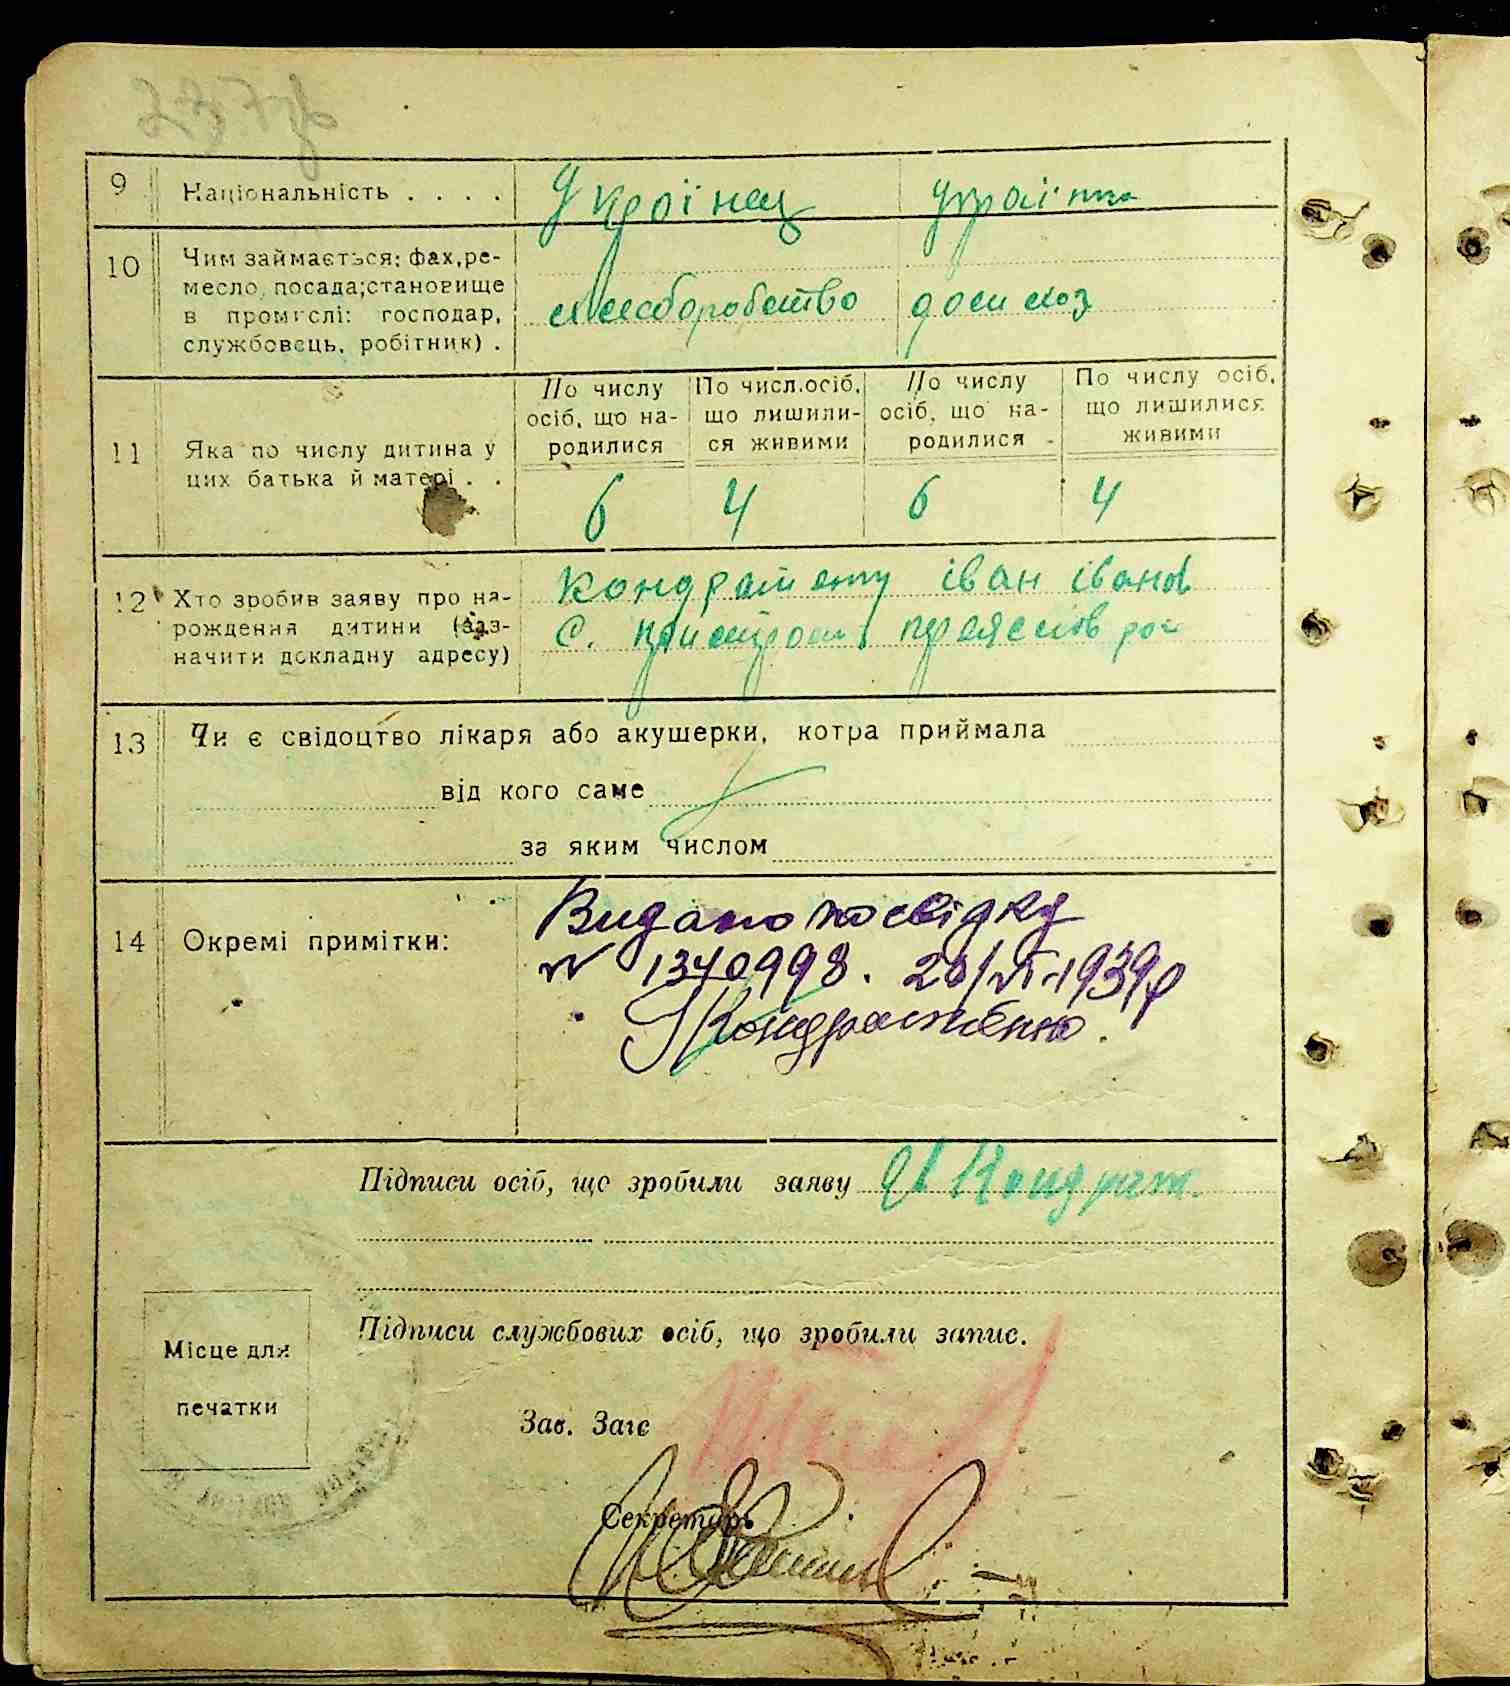 9 Національність . . . . Українец україн
10 Чим займається: фах, ре-
месло, посада; становище
в промислі: господар,
службовець, робітник) . домхоз
По числу осіб, що на-родилися По числ. осіб, що лишили-ся живими По числу осіб, що на-родилися По числу осіб, що лишилися живими
11 Яка по числу дитина у
цих батька й матері . .
6 4 6 4
12 Хто зробив заяву про на-
рождення дитини (заз-
начити докладну адресу)
Кондратенко іван іванов
с.
13 Чи є свідоцтво лікаря або акушерки, котра приймала
від кого саме
за яким числом
14 Окремі примітки:
Видано посвідку
№ 1340998. 20/VI-1939р
Кондратенко.
Підписи осіб, що зробили заяву И Кондрат.
Підписи службових осіб, що зробили запис.
Місце для
печатки
Зав. Загс
Секретарь